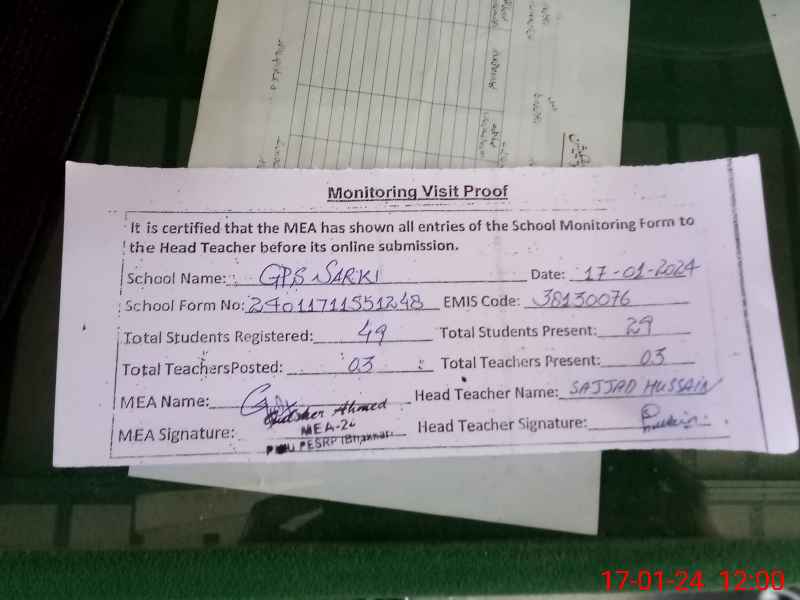 Monitoring Visit Proof
It is certified that the MEA has shown all entries of the School Monitoring Form to
the Head Teacher before its online submission.
School Name: GPS SARKI Date: 17-01-2024
School Form No: 24011711551248 EMIS Code: 38130076
Total Students Registered: 49 Total Students Present: 29
Total TeachersPosted: 03 Total Teachers Present: 03
MEA Name: Head Teacher Name: SAJJAD HUSSAIN
Ahmed
MEA Signature: MEA-2 Head Teacher Signature:
PESRP
17-01-24 12:00